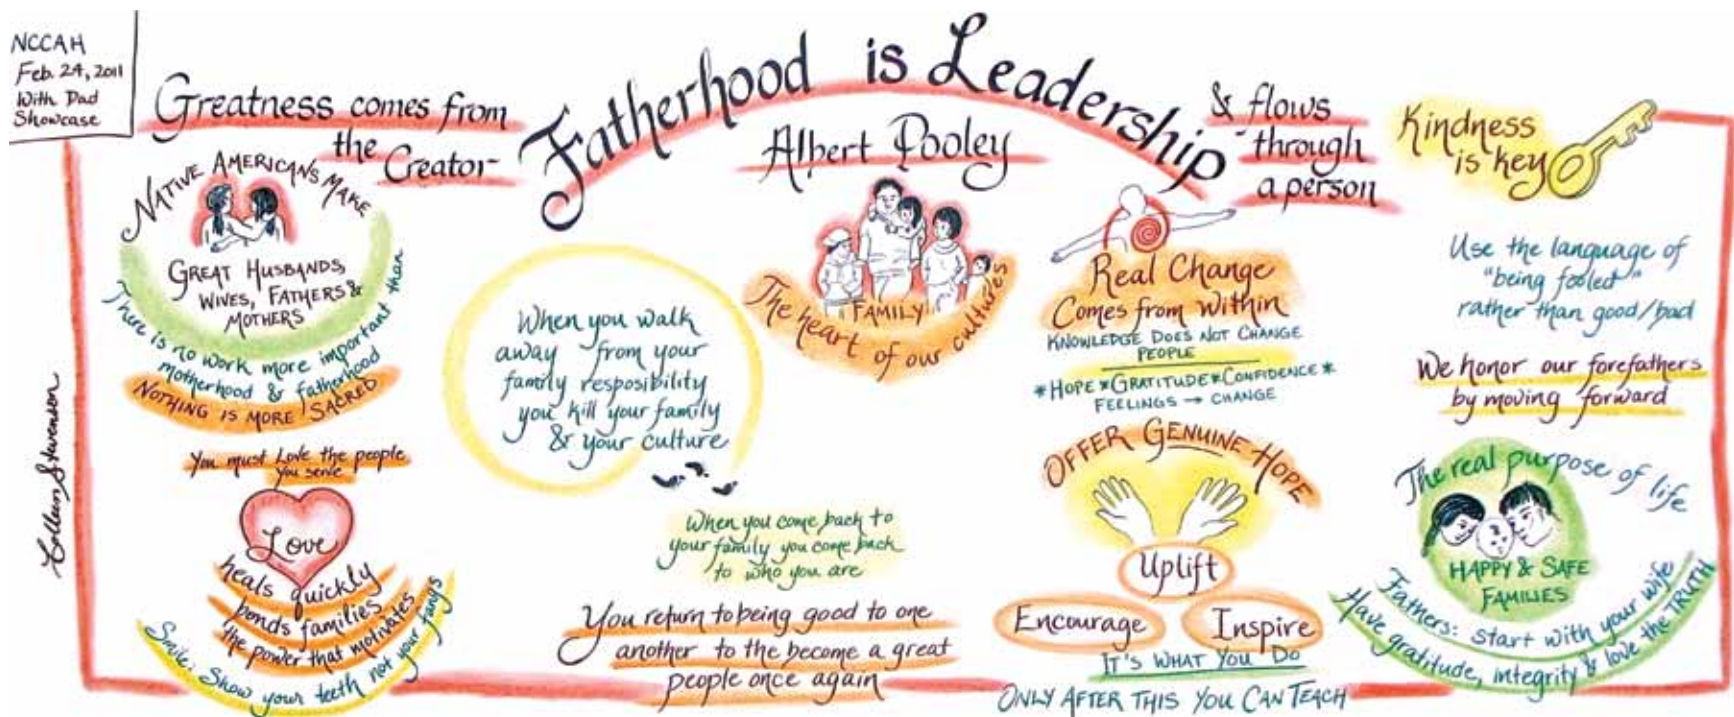 NCCAH
Feb. 24, 2011
With Dad
Showcase
Greatness comes from
the Creator
Fatherhood is Leadership
Albert Pooley
& flows
through
a person
Kindness
is key
NATIVE AMERICANS MAKE
GREAT HUSBANDS,
WIVES, FATHERS &
MOTHERS
There is no work more important than
motherhood & fatherhood
NOTHING IS MORE SACRED
You must Love the people
you serve
Love
heals quickly
bonds families
the power that motivates
Smile: Show your teeth not your fangs
When you walk
away from your
family resposibility
you kill your family
& your culture
FAMILY
The heart of our cultures
When you come back to
your family you come back
to who you are
You return to being good to one
another to the become a great
people once again
Real Change
Comes from Within
KNOWLEDGE DOES NOT CHANGE
PEOPLE
*HOPE*GRATITUDE*CONFIDENCE*
FEELINGS → CHANGE
OFFER GENUINE HOPE
Uplift
Encourage
Inspire
IT'S WHAT YOU DO
ONLY AFTER THIS YOU CAN TEACH
Use the language of
"being fooled"
rather than good/bad
We honor our forefathers
by moving forward
The real purpose of life
HAPPY & SAFE
FAMILIES
Fathers: start with your wife
Have gratitude, integrity & love the TRUTH
Colleen Stevenson